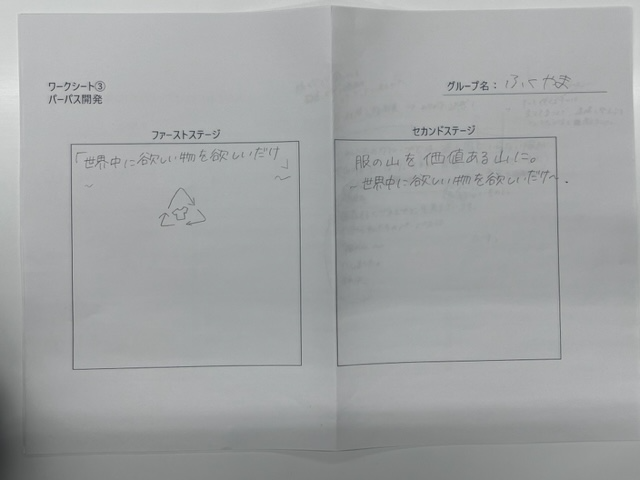 ワークシート③
パーパス開発
グループ名：ふくやま
ファーストステージ
「世界中に欲しい物を欲しいだけ」
～ ～
セカンドステージ
服の山を価値ある山に。
～世界中に欲しい物を欲しいだけ～.